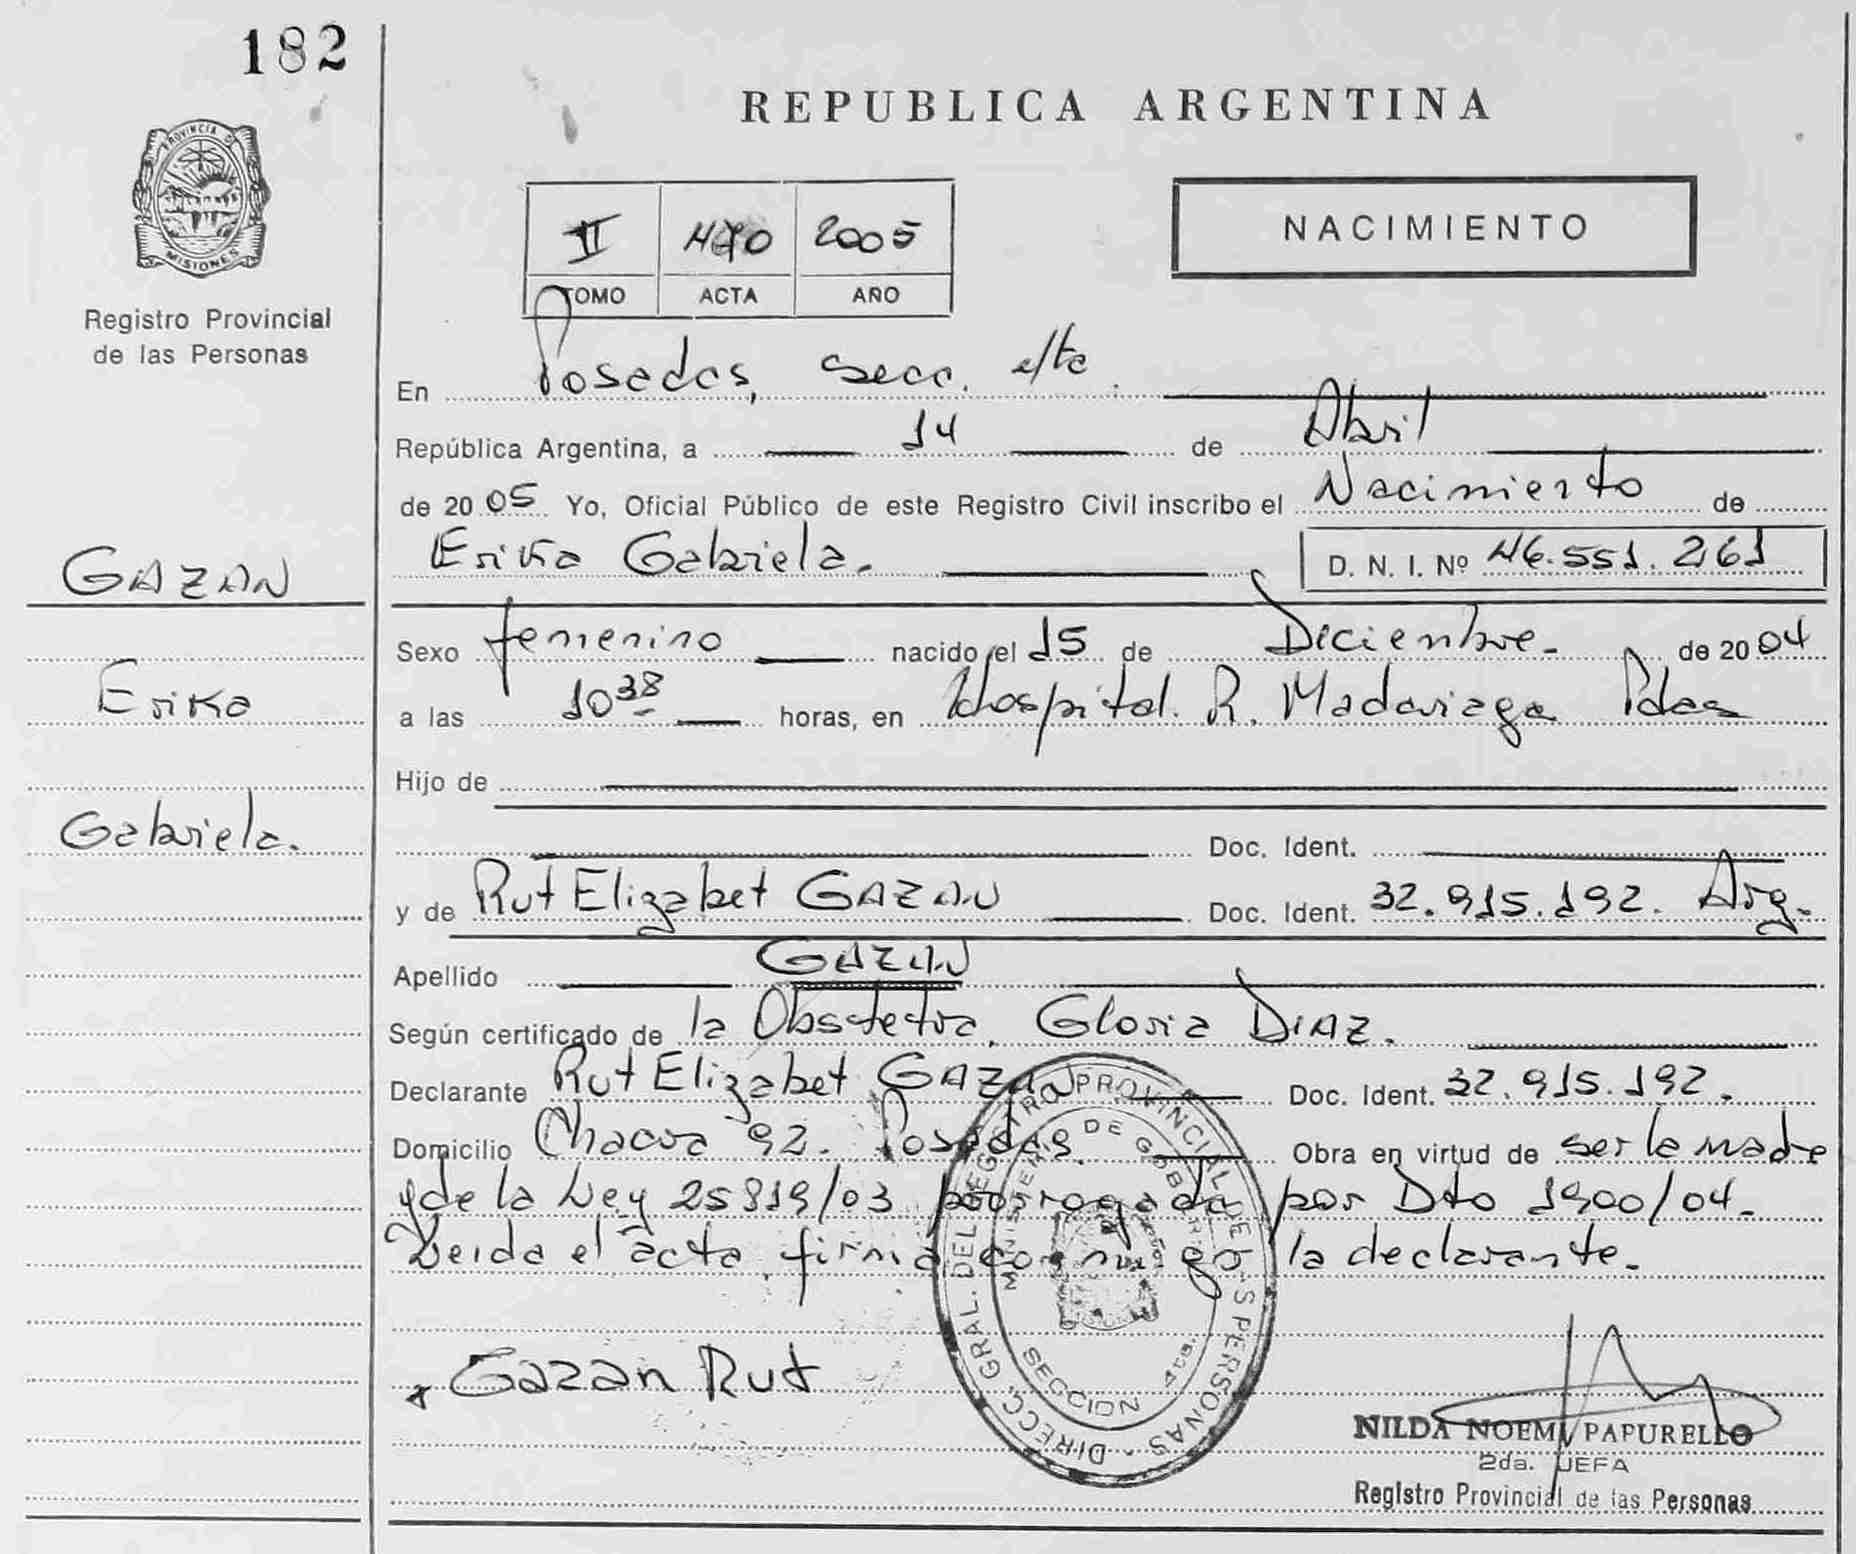 182
REPUBLICA ARGENTINA
PROVINCIA D
MISIONES
Registro Provincial
de las Personas
II 470 2005
TOMO ACTA AÑO
NACIMIENTO
En Posadas, secc. 4ta.
República Argentina, a 14 de Abril
de 2005 Yo, Oficial Público de este Registro Civil inscribo el Nacimiento de
Erika Gabriela. D. N. I. Nº 46.551.261
GAZAN
Sexo femenino nacido el 15 de Diciembre. de 2004
Erika
a las 10 38 horas, en Hospital. R. Madariaga Pdas
Hijo de
Gabriela.
Doc. Ident.
y de Rut Elizabet GAZAN Doc. Ident. 32.915.192. Arg.
Apellido GAZAN
Según certificado de la Obstetra, Gloria DIAZ.
Declarante Rut Elizabet GAZAN Doc. Ident. 32.915.192.
Domicilio Chacra 92. Posadas. Obra en virtud de ser la madre
y de la Ley 25819/03 prorrogada por Dto 1900/04.
Leida el acta, firma conmigo la declarante.
DIRECC. GRAL. DEL REGISTRO PROVINCIAL DE LAS PERSONAS
MINISTERIO DE GOBIERNO
SECCION 4ta.
Gazan Rut
NILDA NOEMI PAPURELLO
2da. JEFA
Registro Provincial de las Personas